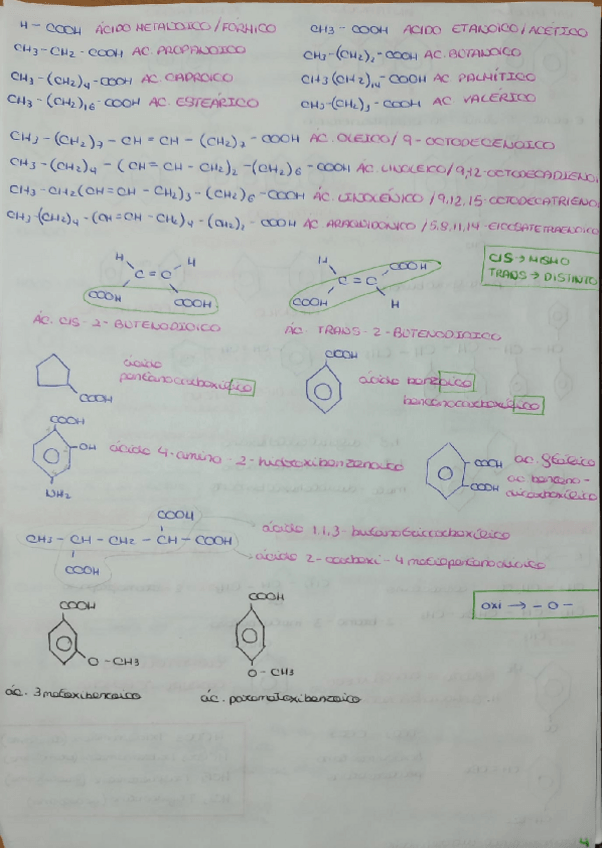 H - COOH ÁCIDO METALOICO/FÓRMICO CH3 - COOH ÁCIDO ETANOICO/ACÉTICO
CH3-CH2-COOH AC. PROPANOICO CH3-(CH2)2-COOH AC. BUTANOICO
CH3-(CH2)4-COOH AC. CAPROICO CH3(CH2)14-COOH AC PALMÍTICO
CH3-(CH2)16-COOH AC. ESTEÁRICO CH3-(CH2)3-COOH AC VALÉRICO
CH3-(CH2)7-CH=CH-(CH2)7-COOH ÁC. OLEICO/9-OCTODECENOICO
CH3-(CH2)4-(CH=CH-CH2)2-(CH2)6-COOH ÁC. LINOLEICO/9,12-OCTODECADIENO
CH3-CH2(CH=CH-CH2)3-(CH2)6-COOH ÁC. LINOLÉNICO/9,12,15-OCTODECATRIENO
CH3-(CH2)4-(CH=CH-CH2)4-(CH2)2-COOH AC ARAQUIDÓNICO/5,8,11,14-EICOSATETRAENOICO
H H C=C COOH COOH
H COOH C=C COOH H
CIS→MISMO
TRANS→DISTINTO
ÁC. CIS-2-BUTENODIOICO ÁC. TRANS-2-BUTENODIOICO
COOH
ácido
pentanocarboxílico
COOH
ácido benzoico
bencenocarboxílico
COOH
OH
NH2
ácido 4-amino-2-hidroxibenzenoico
COOH
COOH
ac. ftálico
ac. benceno-
dicarboxílico
COOH
CH3-CH-CH2-CH-COOH
COOH
ácido 1,1,3-butanotricarboxílico
ácido 2-carboxi-4metilpentanodioico
COOH
O-CH3
COOH
O-CH3
OXI → -O-
ác. 3metoxibenzoico ác. parametoxibenzoico
4